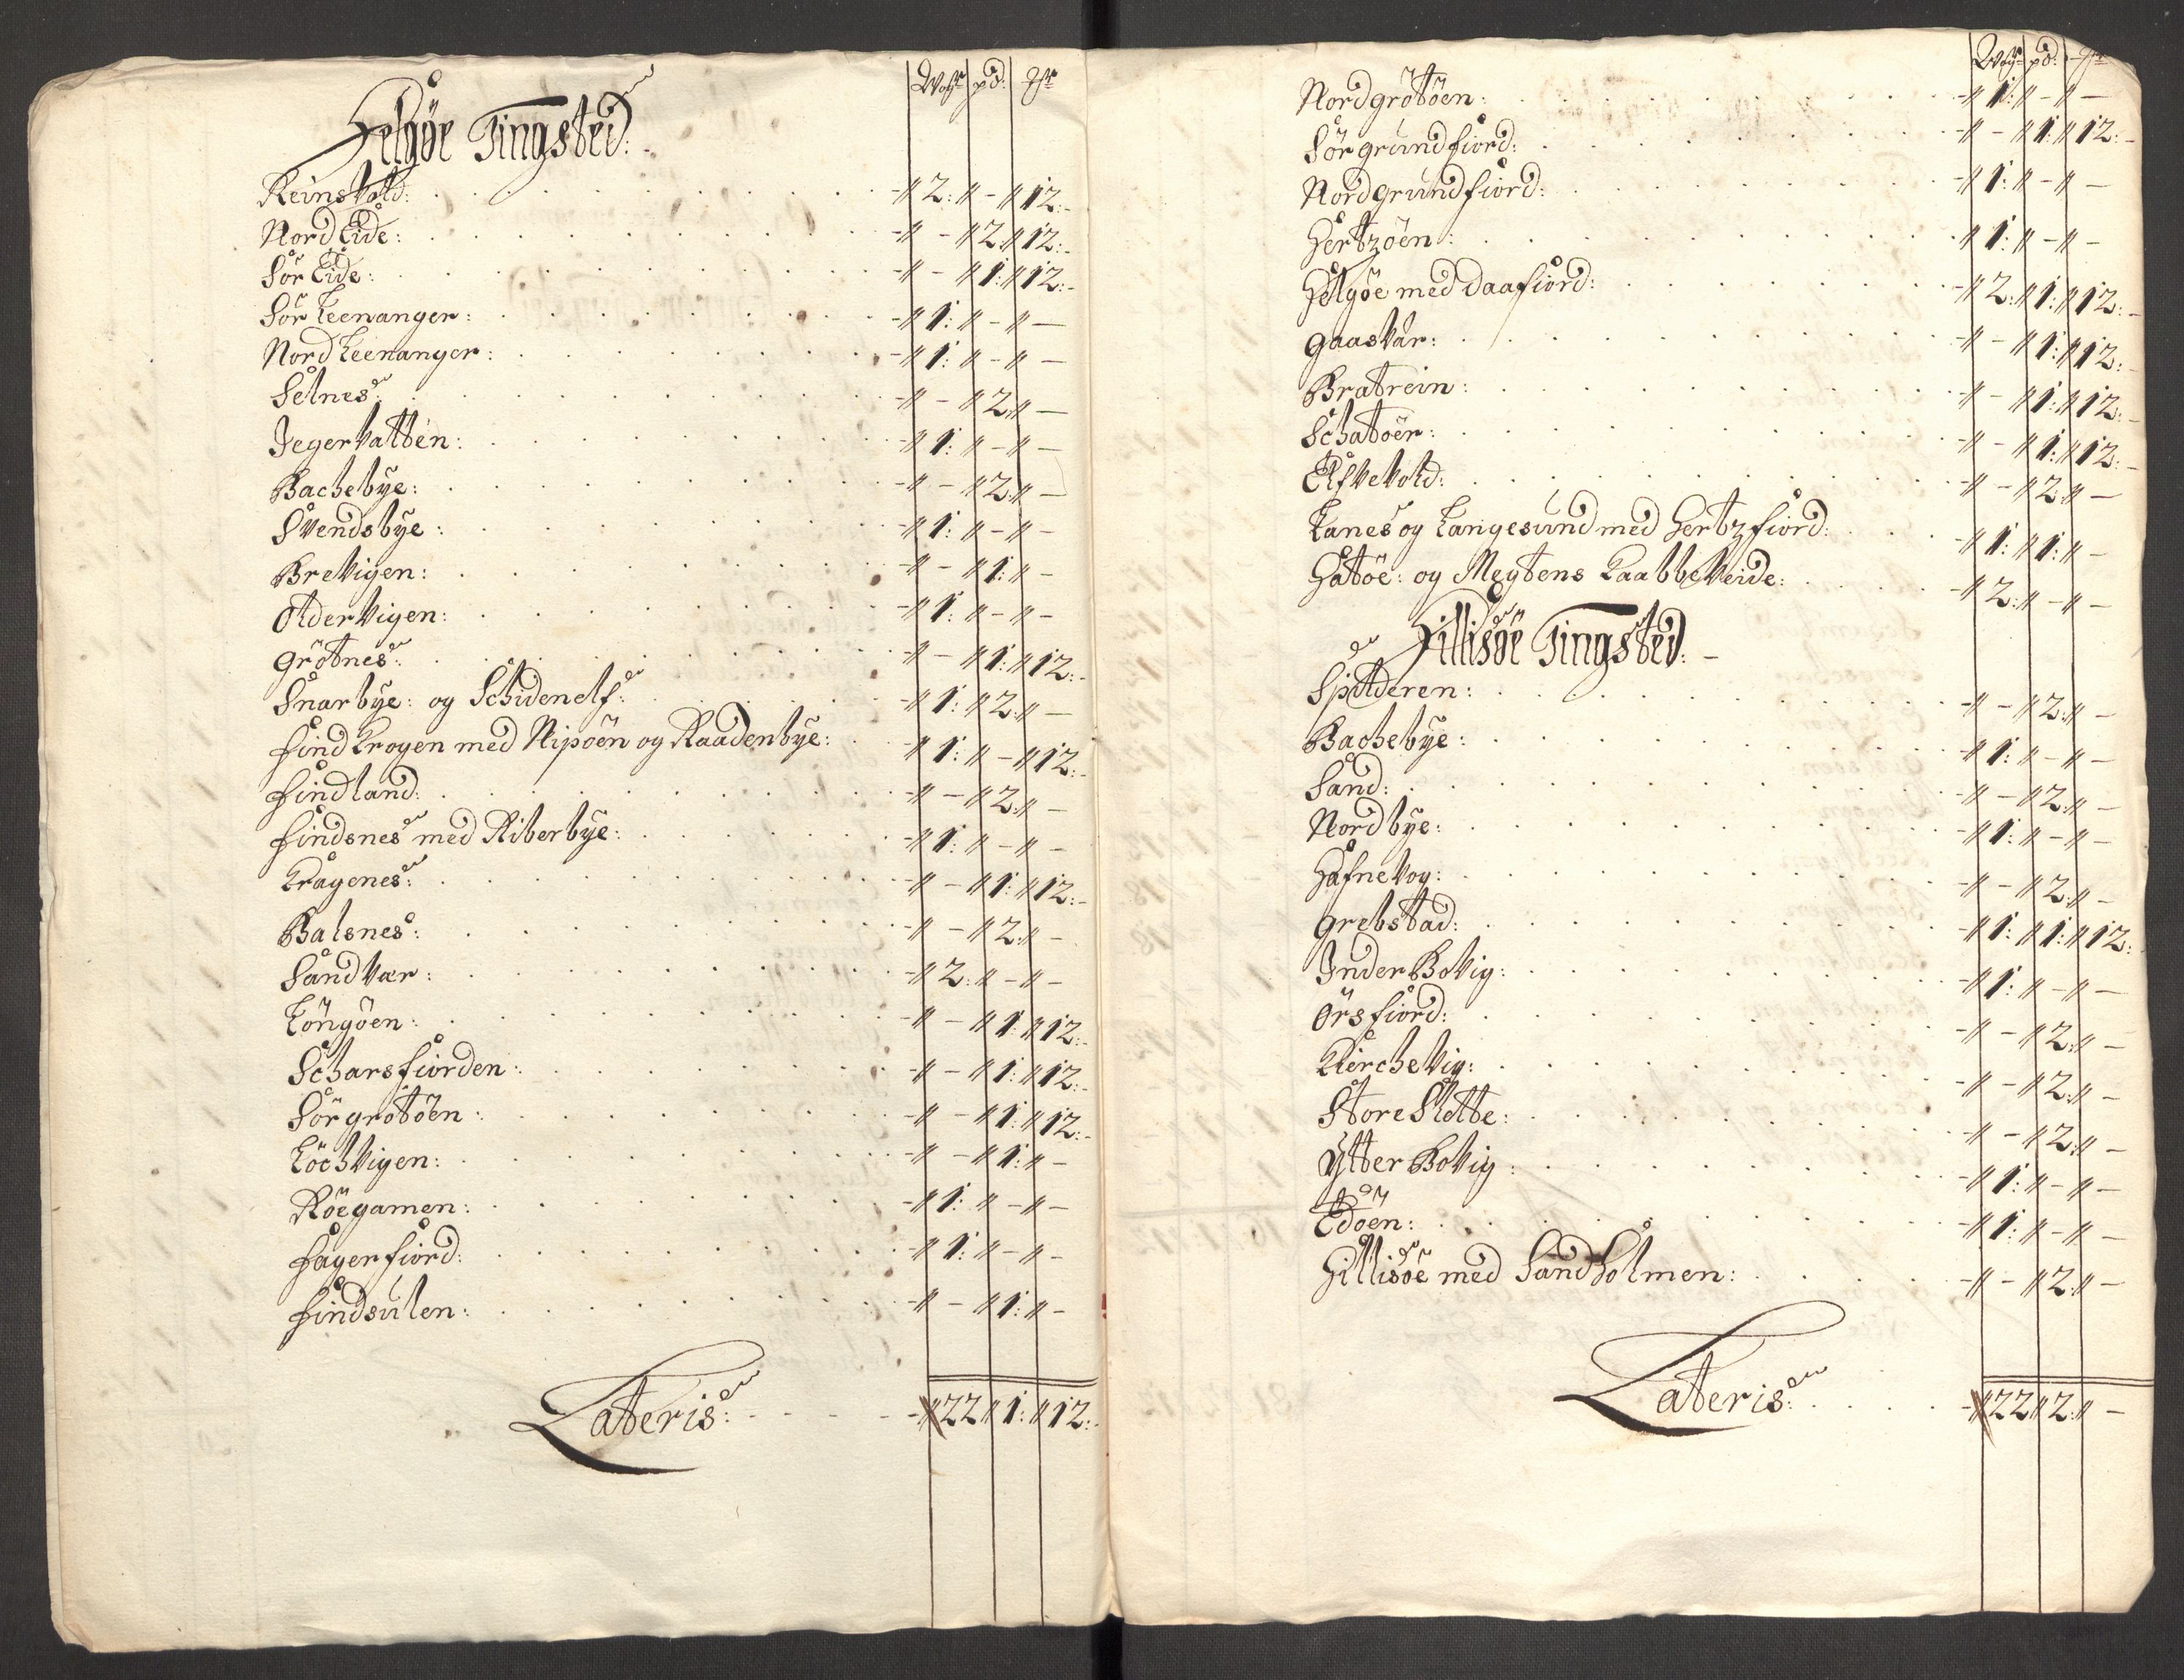 Wogr pd: 
Helgöe Tingsted:
Reinsvold: // 2: // - // 12:
Nord Eide: // - // 2 // 12:
Sör Eide: // - // 1: // 12:
Sör Leenanger: // 1: // - // -
Nord Leenanger: // 1: // - // -
Selnes: // - // 2: // -
Jegervatten: // 1: // - // -
Bachebye: // - // 2: // -
Svendsbye: // 1: // - // -
Brevigen: // - // 1: // -
Oldervigen: // 1: // - // -
Grötnes: // - // 1: // 12:
Snarbye: og Schidenelf: // 1: // 2: // -
Find Krogen med Nipöen og Raadenbye: // 1: // - // 12:
Findland: // - // 2: // -
Findsnes med Riberbye: // 1: // - // -
Kragenes: // - // 1: // 12:
Balsnes: // - // 2: // -
Sandvær: // 2: // - // -
Löngöen: // - // 1: // 12:
Scharsfiorden: // - // 1: // 12:
Sörgrotöen: // - // 1: // 12:
Löchvigen: // - // 1: // -
Röegamen: // 1: // - // -
Fagerfiord: // 1: // - // -
Findsulen: // - // 1: // -
Lateris: // 22 // 1: // 12:
Wogr pd:
Nordgrötöen: // 1: // - // -
Sörgrundfiord: // - // 1: // 12:
Nordgrundfiord: // 1: // - // -
Hertzöen: // 1: // - // -
Helgöe med Daafiord: // 2: // 1: // 12:
Gaasvær: // - // 1: // 12:
Bratrein: // - // 1: // 12:
Schatöer: // - // 1: // 12:
Elfvevold: // - // 2: // -
Lanes og Langesund med Hertzfiord: // 1: // 1: // -
Hatöe: og Meytens Kaabbeveide: // 2: // - // -
Hillisöe Tingsted:
Spilderen: // - // 2: // -
Bachebye: // 1: // - // -
Sand: // - // 2: // -
Nordbye: // 1: // - // -
Hafnevog: // - // 2: // -
Grebstad: // 1: // 1: // 12:
Inder Bovig: // 1: // - // -
Örsfiord: // - // 2: // -
Kierchevig: // - // 2: // -
Store Slette: // - // 2: // -
Ytter Bovig: // 1: // - // -
Edöen: // 1: // - // -
Hillisöe med Sandholmen: // - // 2: // -
Lateris: // 22 // 2: // -